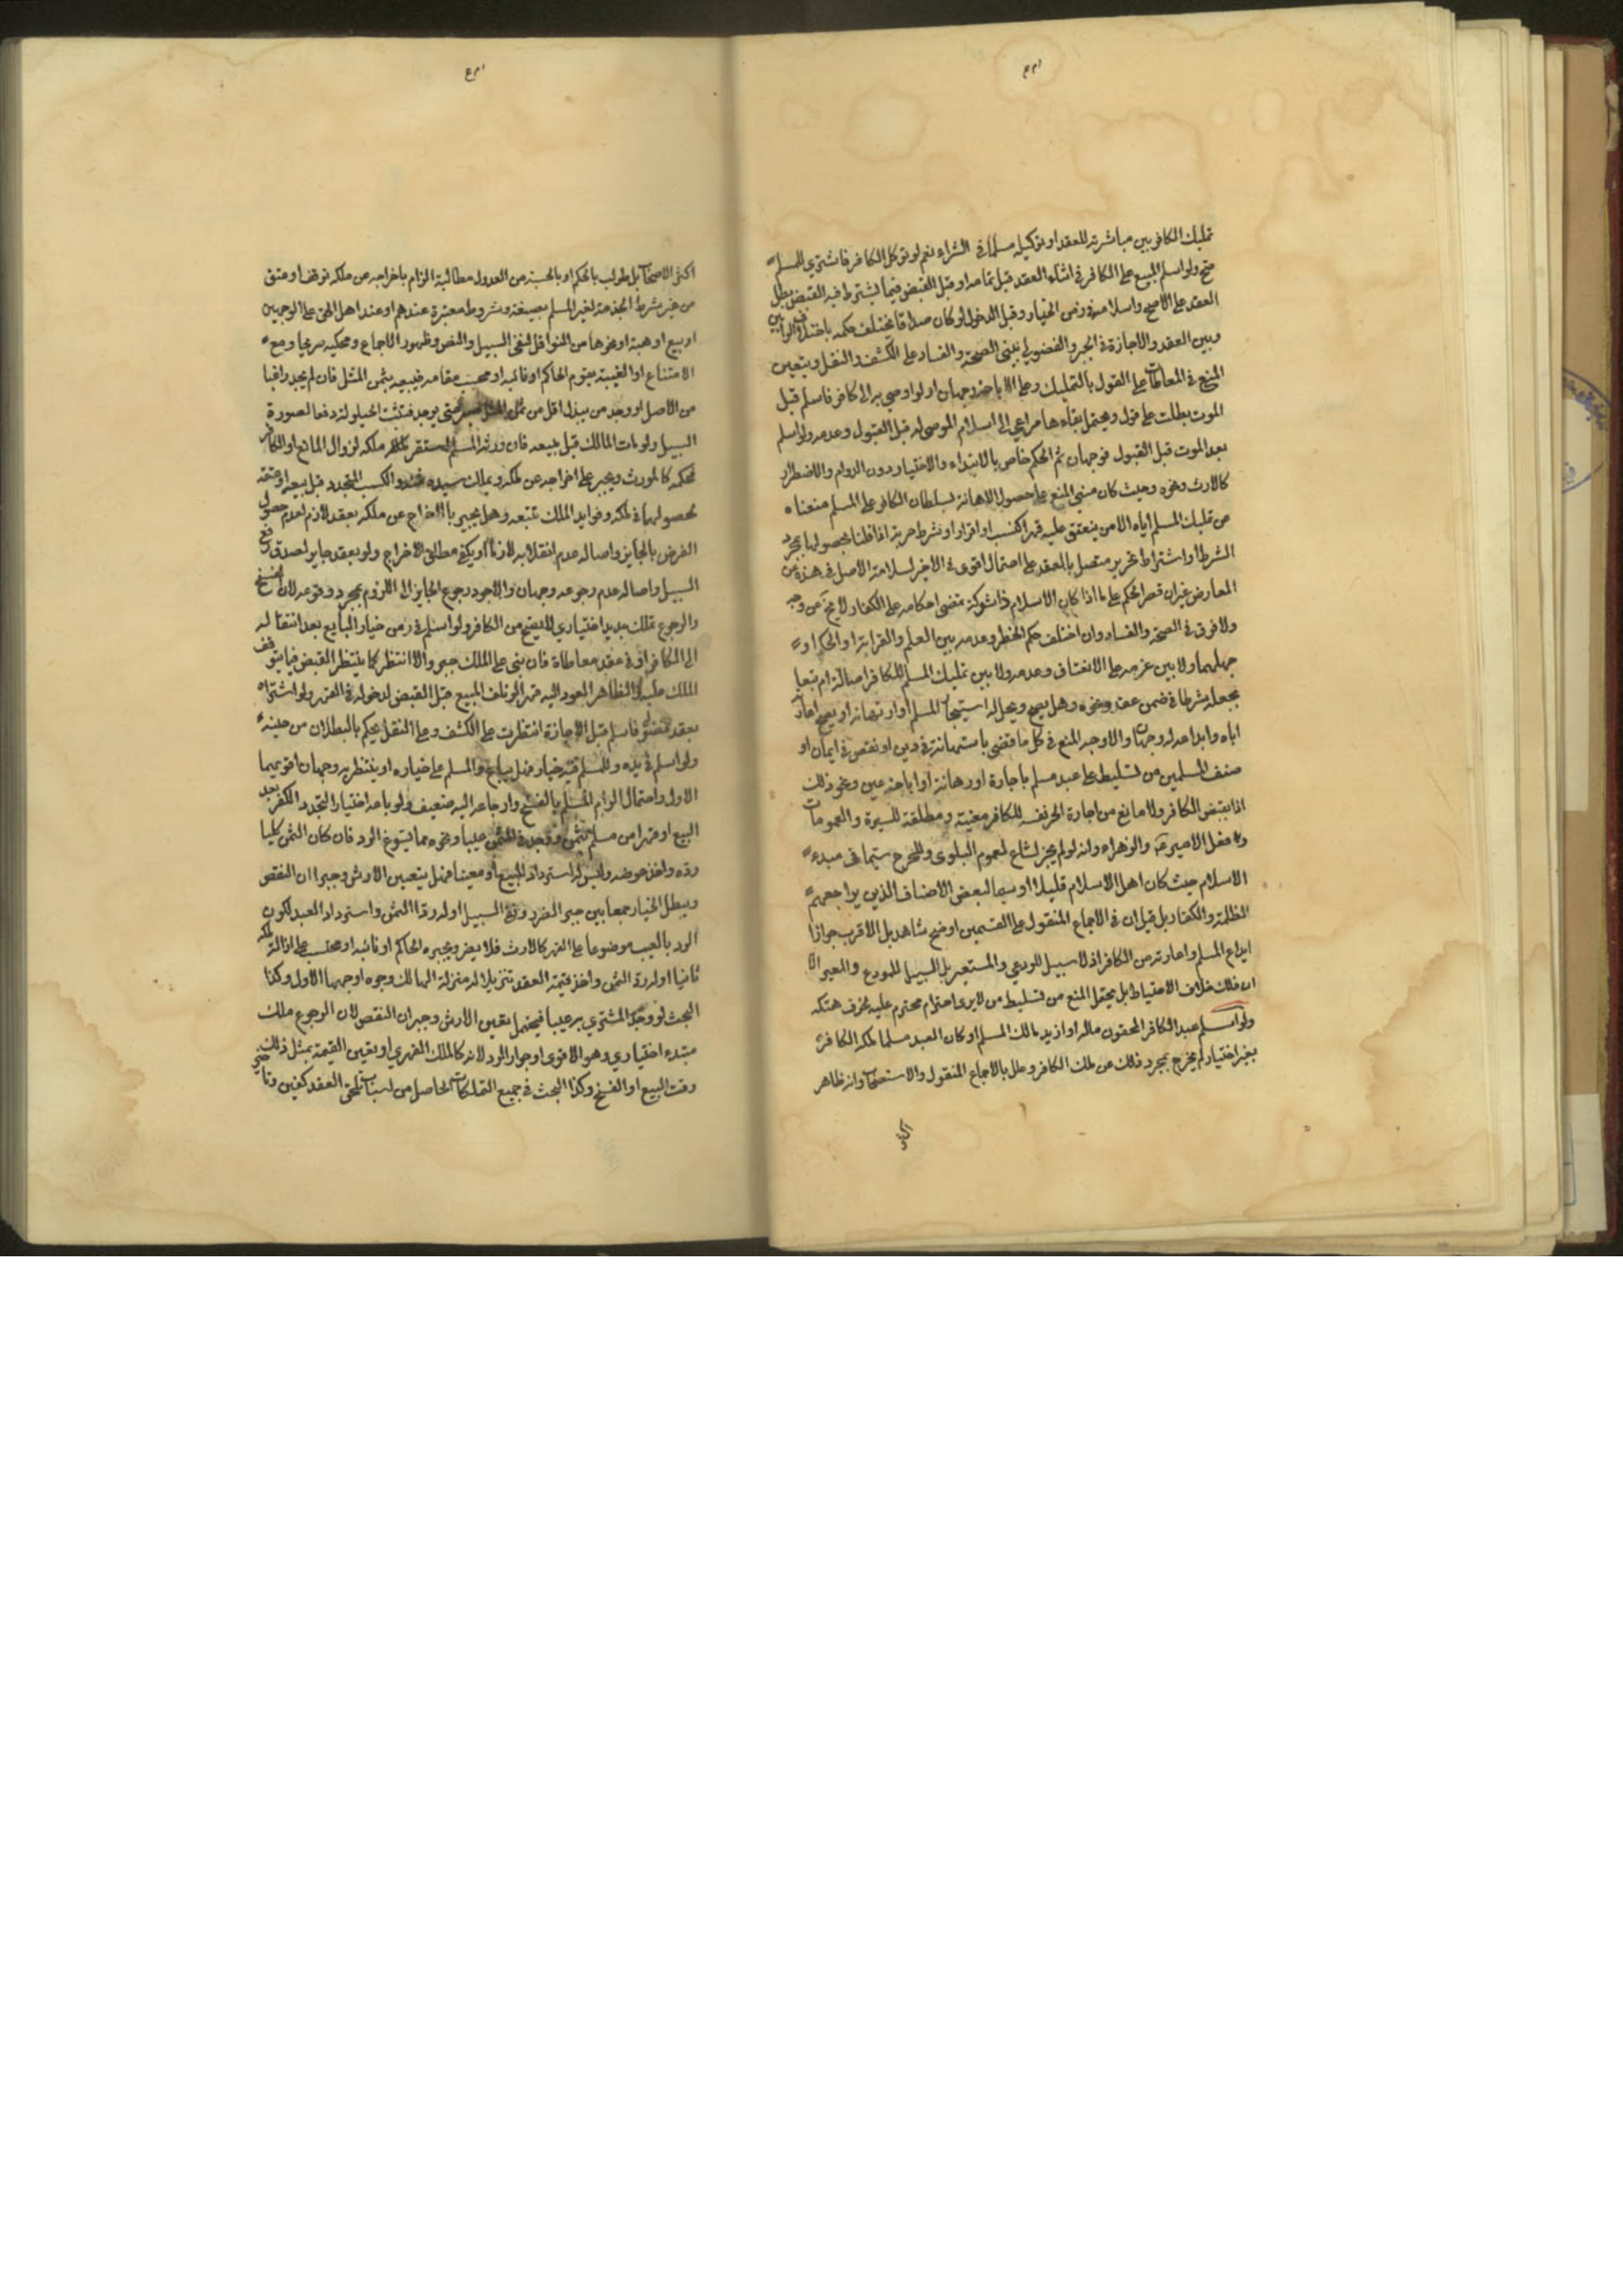 تمليك الكافر بين مباشرته للعقد او توكيله مسلما في الشراء نعم لو توكل الكافر فاشترى للمسلم
صح ولو اسلم المبيع على الكافر في اثناء العقد قبل تمامه او قبل القبض فيما يشترط فيه القبض بطل
العقد على الاصح واسلامه في زمن الخيار وقبل الدخول لو كان صداقا يختلف حكمه باختلاف الرأيين
وبين العقد والاجازة في الجبر والفضولي يبنى الصحة والفساد على الكشف والنقل ويتعين
المنع في المعاطات على القول بالتمليك وعلى الاباحة وجهان ولو اوصي به الى كافر فاسلم قبل
الموت بطلت على قول ويحتمل بقاءها مراعى الى اسلام الموصى له قبل القبول وعدمه ولو اسلم
بعد الموت قبل القبول فوجهان ثم الحكم خاص بالابتداء والاختيار دون الدوام والاضطرار
كالارث ونحوه وحيث كان مبنى المنع على حصول الاهانة لسلطان الكافر على المسلم منعناه
من تمليك المسلم اياه الا من ينعتق عليه قهرا كنسب او اقرار او شرط حرية اذا قلنا بحصولها بمجرد
الشرط او اشتراط تحرير متصل بالعقد على احتمال اقوى في الاخير لسلامة الاصل في هذه من
المعارض غير ان قصر الحكم على ما اذا كان الاسلام ذا شوكة تمضى احكامه على الكفار لا يخ من وجه
ولا فرق في الصحة والفساد وان اختلف حكم الخطر وعدمه بين العلم والقرابة او الحكم او
جهلهما ولا بين عزمه على الانعتاق وعدمه ولا بين تمليك المسلم للكافر اصالة ام تبعا
بجعله شرطا في ضمن عقد ونحوه وهل يصح ويحل له استيجار المسلم او ارتهانه او يصح اعارته
اياه وايداعه له وجهان والاوجه المنع في كل ما قضى باستهانة في دين او نقص في ايمان او
صنف المسلمين من تسليط على عبد مسلم باجارة او رهانة او اباحة عين ونحو ذلك
اذا بقبض الكافر ولا مانع من اجارة الحر نفسه للكافر معينة ومطلقة للسيرة والعمومات
وفعل الامير ع والزهراء وانه لو لم يجز لشاع لعموم البلوى وللحرج سيما في مبدء
الاسلام حيث كان اهل الاسلام قليلا او سيما لبعض الاصناف الذين يراجعهم
الظلمة والكفار بل قيل ان في الاجماع المنقول على القسمين اوضح شاهد بل الاقرب جواز
ايداع المسلم واعارته من الكافر اذ لا سبيل للودعي والمستعير بل السبيل للمودع والمعير الا
ان ذلك خلاف الاحتياط بل يحتمل المنع من تسليط من لا يرى احترام محترم عليه لخوف هتكه
ولو اسلم عبد الكافر المحقون ماله او ازيد مالك المسلم او كان العبد مسلما لملكه الكافر
بغير اختيار لم يخرج بمجرد ذلك عن ملك الكافر وعلل بالاجماع المنقول والاستصحاب وانه ظاهر
اكثر
اكثر الاصحاب بل طولب بالحكم او بالحسبة من العدول مطالبة الزام باخراجه عن ملكه بوقف او عتق
من غير شرط الخدمة لغير المسلم بصيغة وشروط معتبرة عندهم او عند اهل الحق على الوجهين
او بيع او هبة او نحوها من النواقل لنفي السبيل والنص وظهور الاجماع ومحكيه صريحا ومع
الامتناع او الغيبة يقوم الحاكم او نائبه او محتسب مقامه فيبيعه بثمن المثل فان لم يجد راغبا
من الاصل او وجد من يبذل اقل من ثمن المثل صبر حتى يوجد فتثبت الحيلولة دفعا لصورة
السبيل ولو مات المالك قبل بيعه فان ورثه المسلم استقر ملكه لزوال المانع او الكافر
فحكمه كالمورث ويجبر على اخراجه عن ملكه ويملك سيده والكسب المتجدد قبل بيعه او عتقه
لحصولها في ملكه وفوايد الملك تتبعه وهل يجبر بالاخراج عن ملكه بعقد لازم لعدم حصول
الغرض بالجايز واصالة عدم انقلابه لازما او يكفي مطلق الاخراج ولو بعقد جايز لصدق رفع
السبيل واصالة عدم رجوعه وجهان والاجود رجوع الجايز الى اللزوم بمجرد وقوعه لان الفسخ
والرجوع تملك جديد اختياري لا يصح من الكافر ولو اسلم في زمن خيار البايع بعد انتقاله
الى الكافر او في عقد معاطاة فان بنى على الملك جبر والا انتظر كما ينتظر القبض فيما يتوقف
الملك عليه والظاهر العود اليه قهرا لو تلف المبيع قبل القبض لدخوله في القهر ولو اشتراه
بعقد فضولي فاسلم قبل الاجازة انتظرت على الكشف وعلى النقل يحكم بالبطلان من حينه
ولو اسلم في يده وللمسلم فيه خيار فهل يباع والمسلم على خياره او ينتظر به وجهان اقويهما
الاول واحتمال الزام المسلم بالفسخ وارجاعه اليه ضعيف ولو باعه اختيار التجدد الكفر بعد
البيع او قهرا من مسلم بثمن فوجد في الثمن عيبا ونحوه مما يسوغ الرد فان كان الثمن كليا
رده واخذ عوضه وليس له استرداد المبيع او معينا فهل يتعين الارش وجبران النقص
ويبطل الخيار جمعا بين جبر الضرر ونفي السبيل او له رد الثمن واسترداد العبد لكون
الرد بالعيب موضوعا على القهر كالارث فلا يضر ويجبره الحاكم او نائبه او محتسب على ازالة ملكه
ثانيا او له رد الثمن واخذ قيمة العقد تنزيلا له منزلة الهالك وجوه اوجهها الاول وكذا
البحث لو وجد المشتري به عيبا فيحتمل تعين الارش وجبران النقص لان الرجوع ملك
مبتدء اختياري وهو الاقوى او جواز الرد لانه كالملك القهري او تعين القيمة بمثل ذلك
وقت البيع او الفسخ وكذا البحث في جميع التملكات الحاصل من اسباب تلحق العقد كغبن